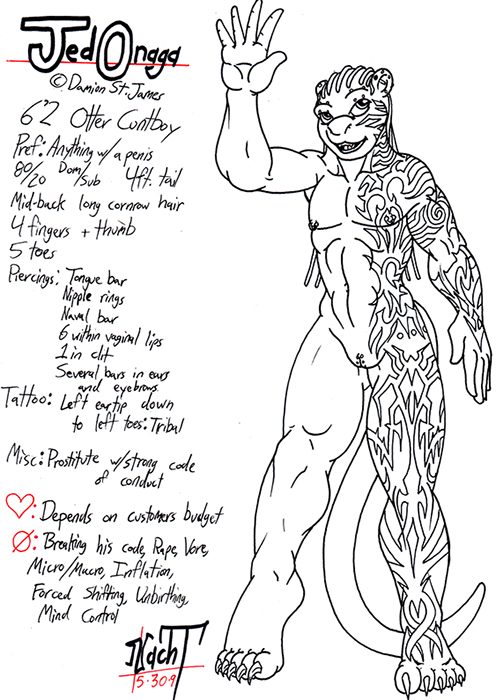 Jed Onaga
© Damien St. James
6'2 Otter Cuntboy
Pref: Anything w/ a penis
80/20 Dom/Sub 4ft. tail
Mid-back long cornrow hair
4 fingers + thumb
5 toes
Piercings: Tongue bar
Nipple rings
Naval bar
6 within vaginal lips
1 in clit
Several bars in ears
and eyebrows
Tattoo: Left eartip down
to left toes: Tribal
Misc: Prostitute w/ strong code
of conduct
♡: Depends on customers budget
Ø: Breaking his code, Rape, Vore,
Micro/Macro, Inflation,
Forced Shifting, Unbirthing,
Mind Control
Nacht
5.309